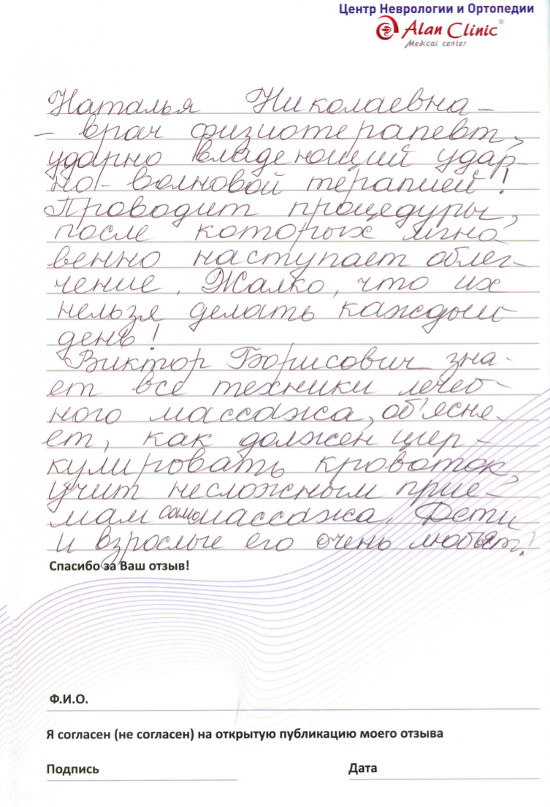 Центр Неврологии и Ортопедии
Alan Clinic®
Medical center
Наталья Николаевна –
– врач физиотерапевт,
ударно владеющий удар-
но-волновой терапией!
Проводит процедуры,
после которых мгно-
венно наступает облег-
чение. Жалко, что их
нельзя делать каждый
день!
Виктор Борисович зна-
ет все техники лечеб-
ного массажа, объясня-
ет, как должен цир-
кулировать кровоток,
учит несложным прие-
мам самомассажа. Дети
и взрослые его очень любят!
Спасибо за Ваш отзыв!
Ф.И.О.
Я согласен (не согласен) на открытую публикацию моего отзыва
Подпись Дата